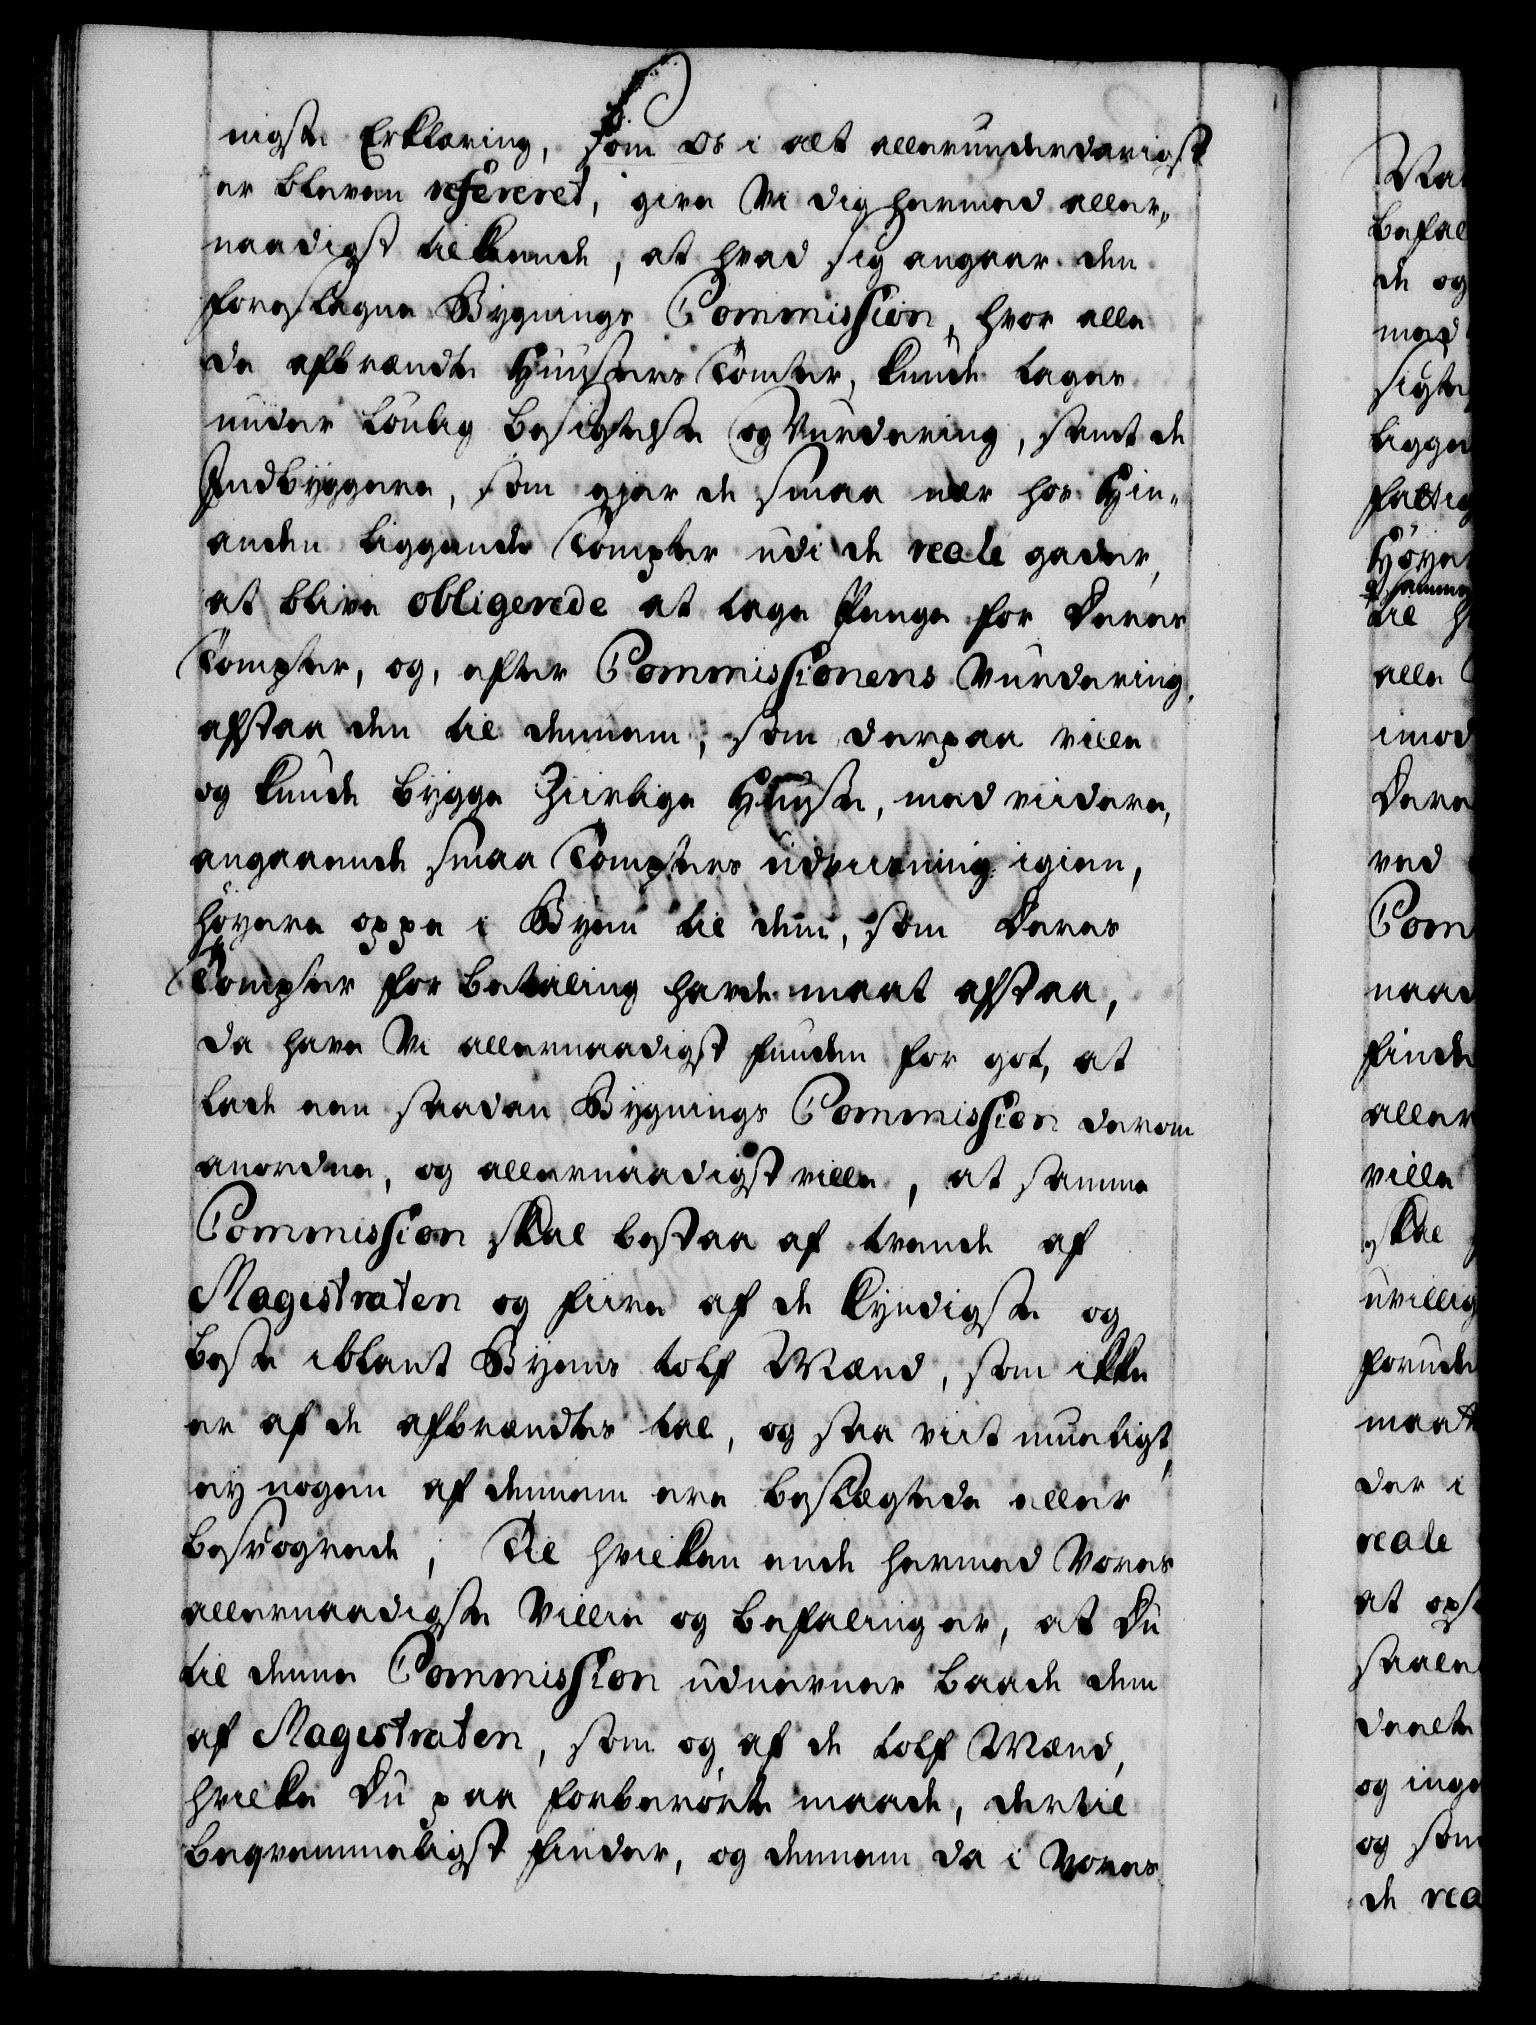 nigste Erklæring, som os i alt allerunderdanigst
er bleven refereret, give Vi dig hermed aller„
naadigst tilkiende, at hvad sig angaar den
foreslagne Bygnings Commission, hvor alle
de afbrændte Huusers Tomter, kunde tages
under Loulig besigtelse og Vurdering, samt de
Indbyggere, som ejer de smaa nær hos Hin„
anden liggende Tompter udi de reale gader,
at blive obligerede at tage Penge for Deres
Tompter, og, efter Commissionens Vurdering,
afstaa den til dennem, som derpaa ville
og kunde bygge Ziirlige Huuse, med viidere,
angaaende smaa Tompters udviisning igien,
høyere oppe i Byen til dem, som Deres
Tompter for betaling havde maat afstaa,
Da have Vi allernaadigst funden for got, at
lade een saadan Bygnings Commission derom
anordne, og allernaadigst ville, at samme
Commission skal bestaa af trende af
Magistraten og fiire af de kyndigste og
beste iblant Byens tolf Mænd, som ikke
er af de afbrændtes tal, og saa vit mueligt,
ey nogen af dennem ere beslægtede eller
besvogrede; Til hvilken ende hermed Vores
allernaadigste Villie og befaling er, at Du
til denne Commission udnevner baade dem
af Magistraten, som og af de tolf Mænd,
hvilke Du paa forberørte maade, dertil
beqvemmeligst finder, og dennem da i Vores